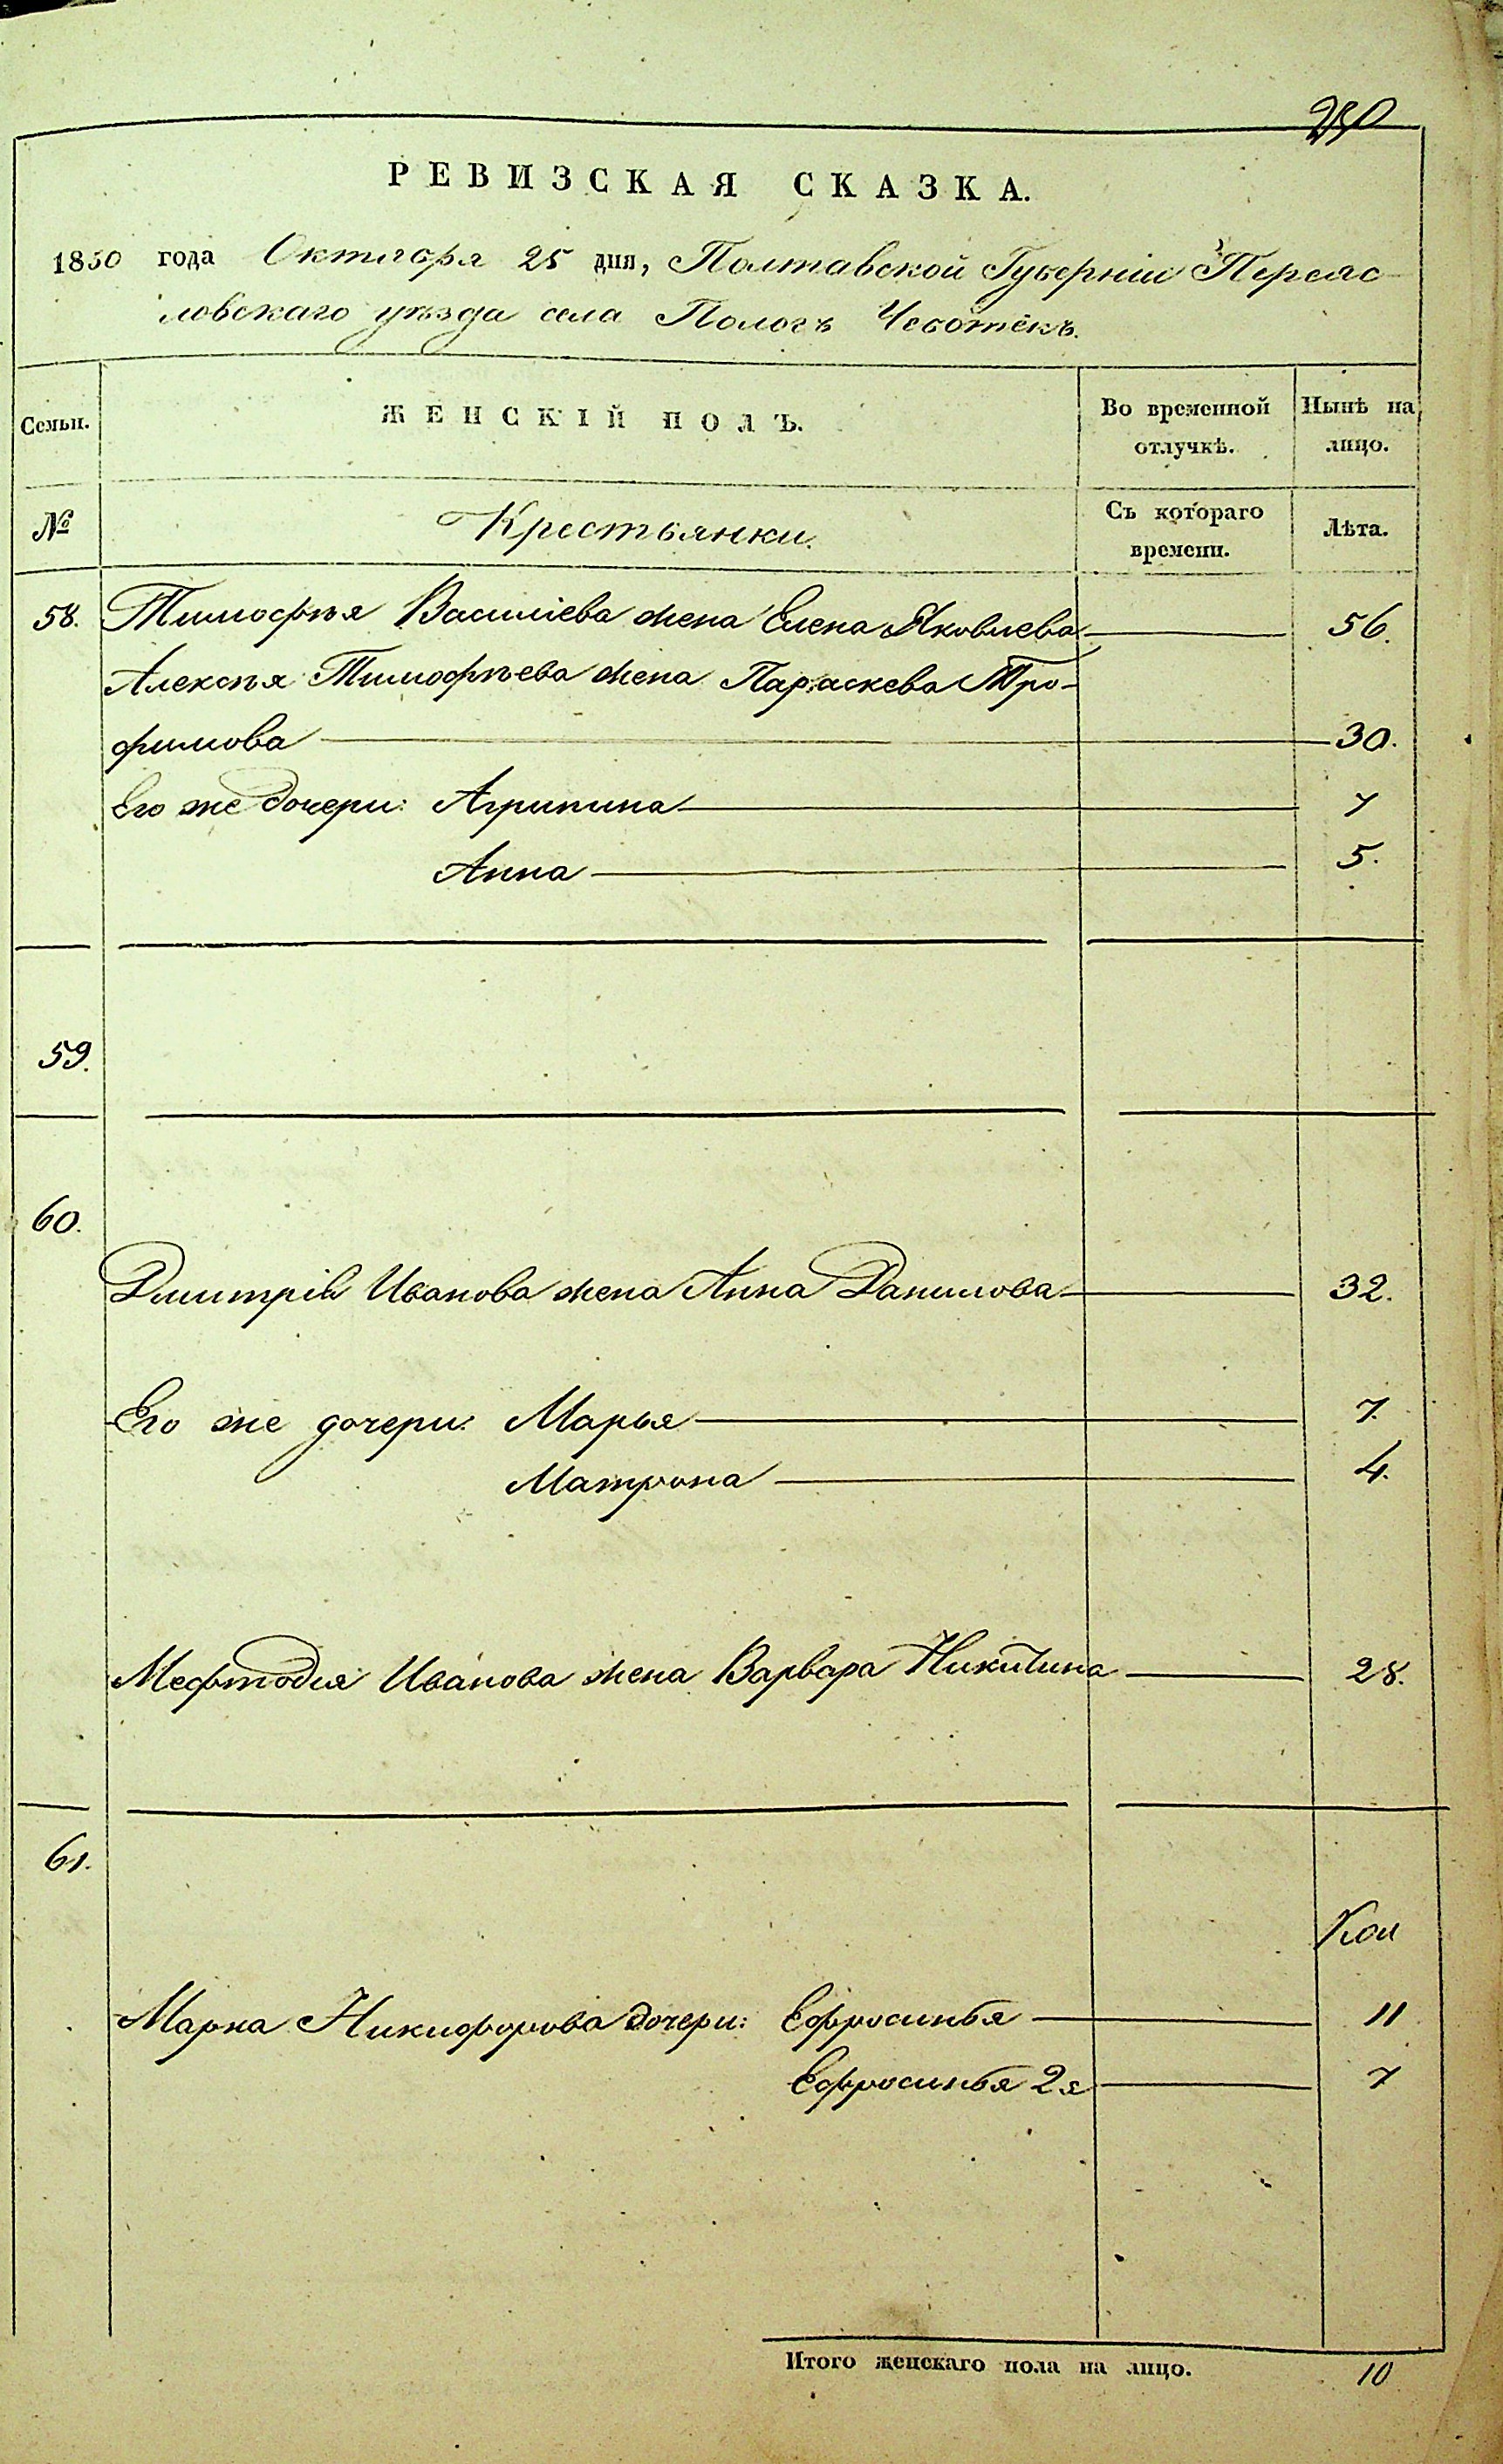 РЕВИЗСКАЯ СКАЗКА.
1850 года Октября 25 дня, Полтавской Губерніи Переяс-
ловскаго уѣзда села Пологъ Чеботекъ.
Семьи. ЖЕНСКІЙ ПОЛЪ. Во временной отлучкѣ. Нынѣ на лицо.
№ Крестьянки. Съ котораго времени. Лѣта.
58. Тимофѣя Василіева жена Елена Яковлева 56.
Алексѣя Тимофѣева жена Параскева Тро-
фимова 30.
Его же дочери: Агрипина 7
Анна 5.
59.
60.
Дмитрія Иванова жена Анна Данилова 32.
Его же дочери: Марья 7.
Матрона 4.
Мефтодия Иванова жена Варвара Никитина 28.
61.
Марка Никифорова дочери: Ефросинья 11
Ефросинья 2я 7
Итого женскаго пола на лицо. 10